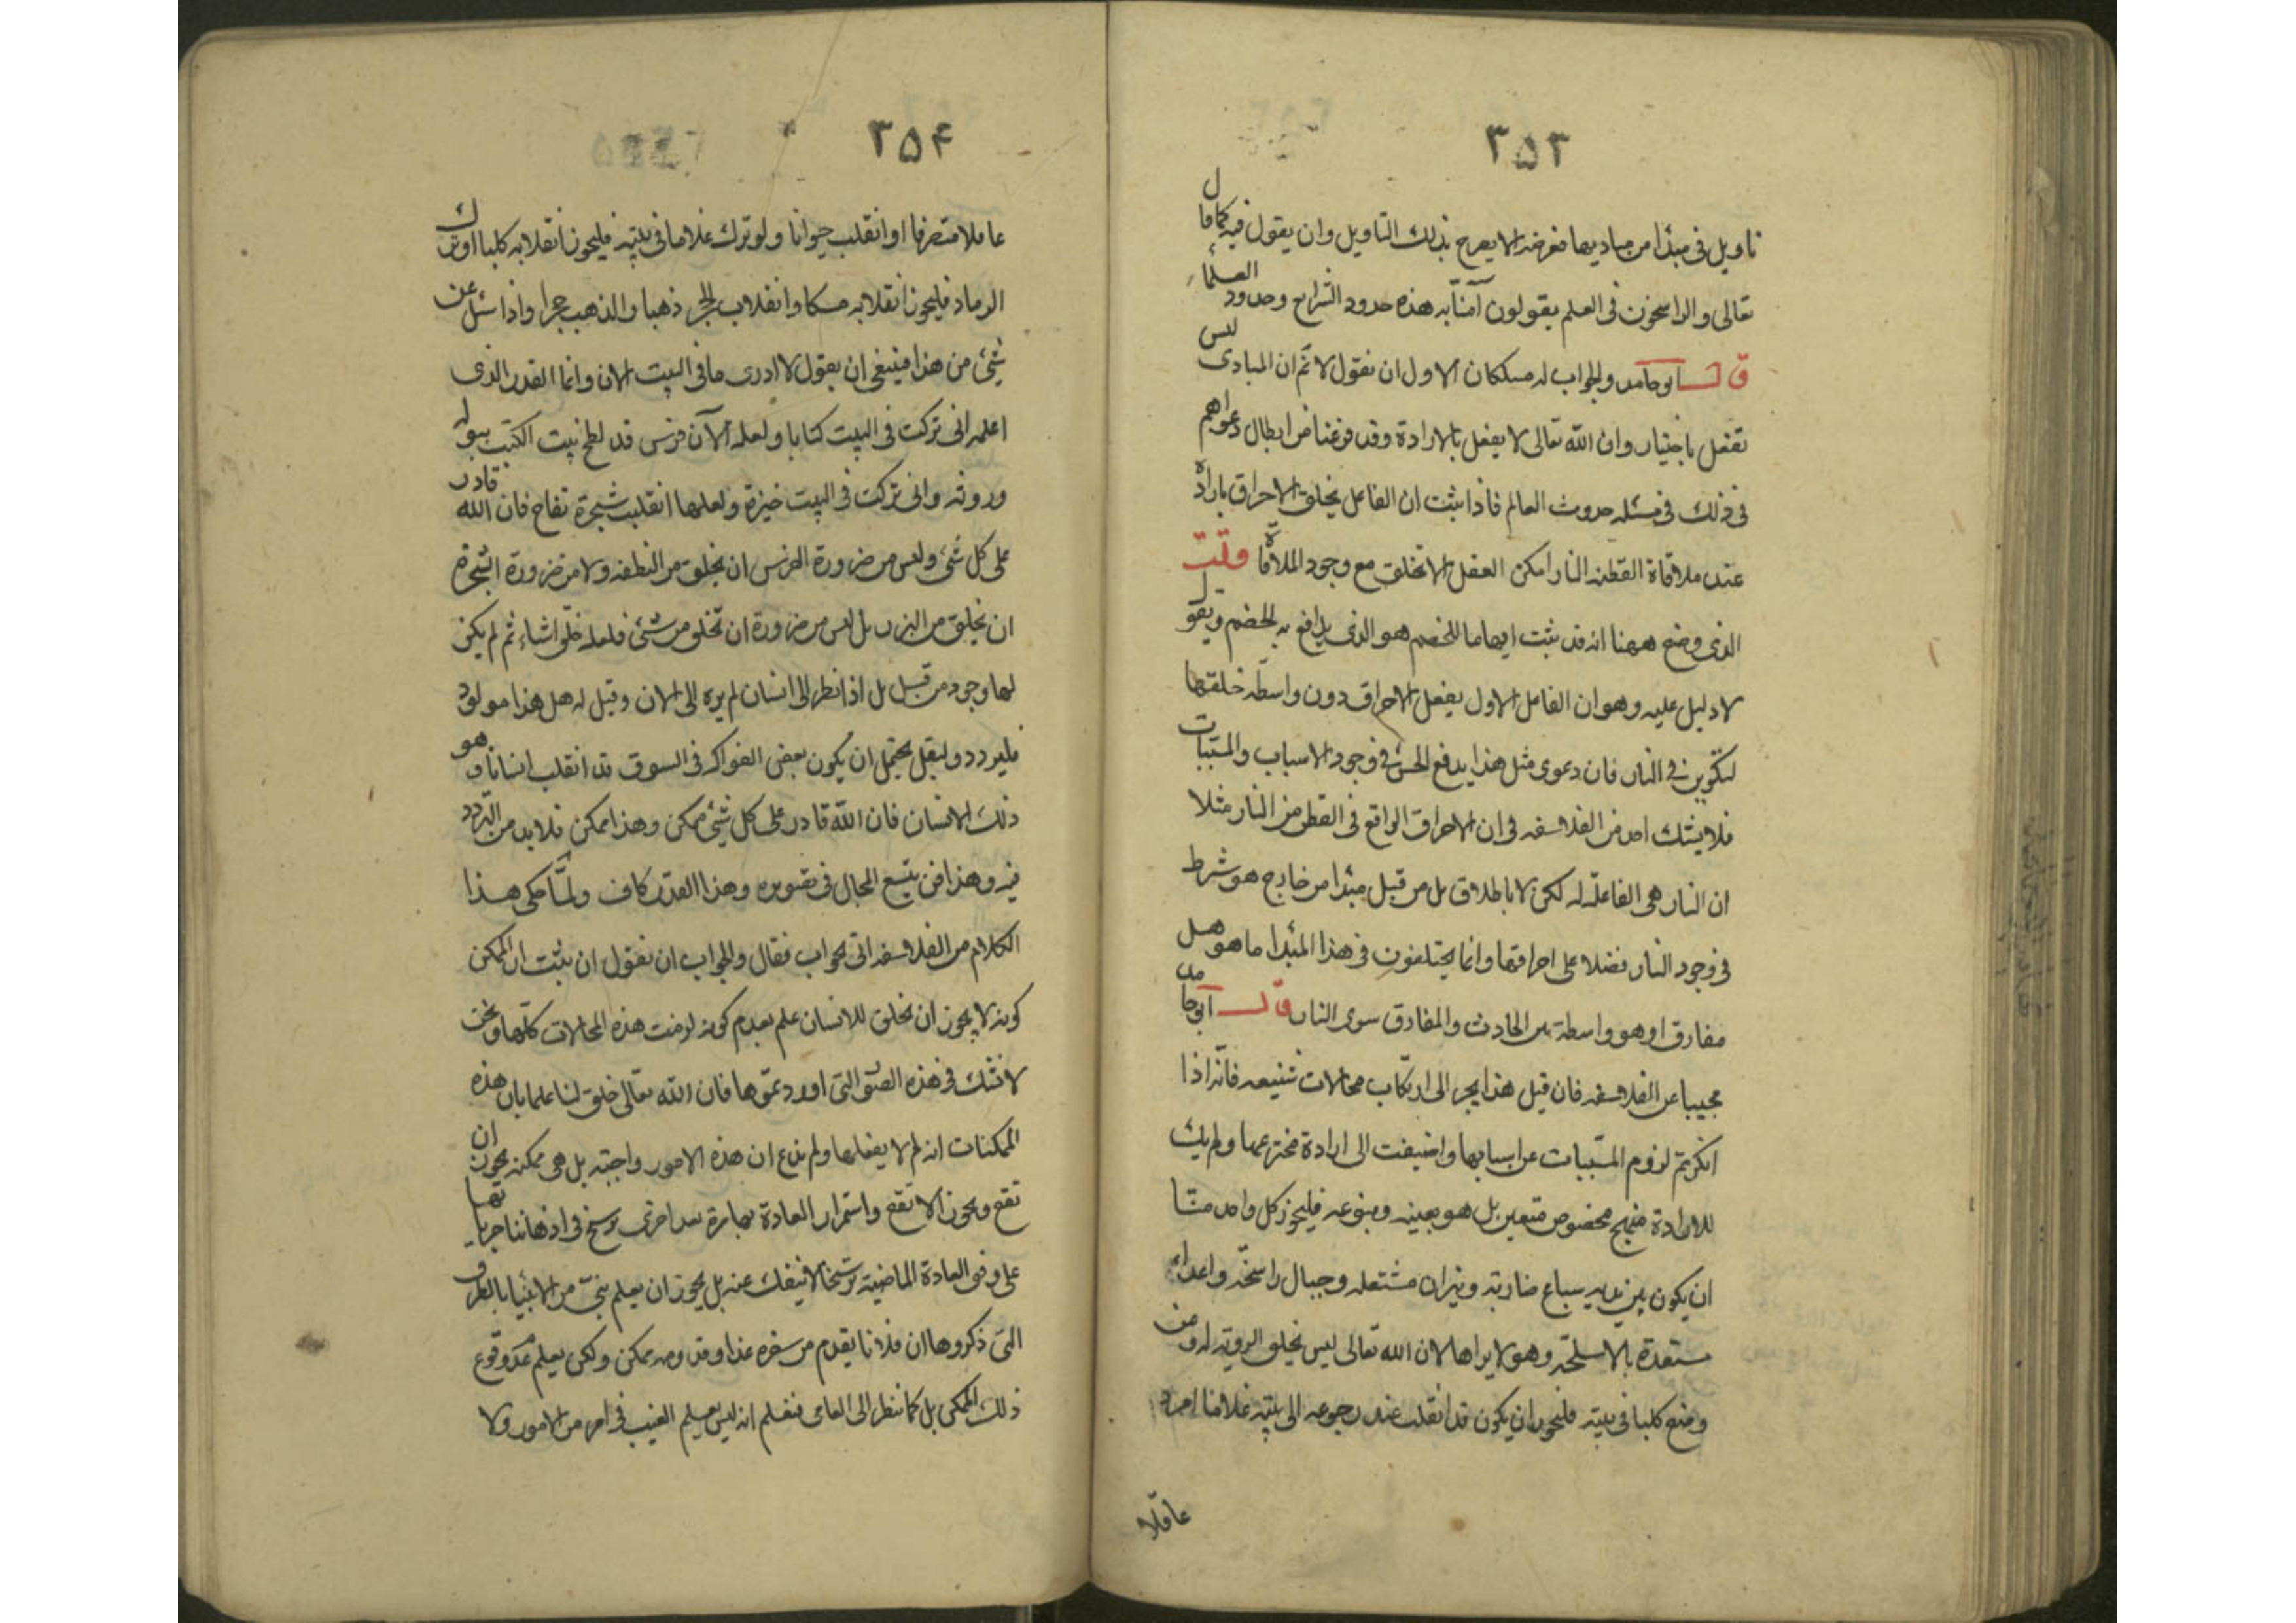 ٣٥٣
تاويل فى مبدأ من مباديها ففرضه الا يصرح بذلك التاويل وان يقول فيه كما قال
تعالى والراسخون فى العلم يقولون آمنا به هذه حدود الشرايع وحدود العلمآء
قال ابو حامد والجواب له مسلكان الاول ان نقول لا نم ان المبادى ليس
تفعل باختيار وان الله تعالى لا يفعل بالارادة وقد فرغنا من ابطال دعواهم
فى ذلك فى مسئله حدوث العالم فاذا ثبت ان الفاعل يخلق الاحراق بارادة
عند ملاقاة القطنه النار امكن العقل الا تخلق مع وجود الملاقاة قلت
الذى وضع ههنا انه قد ثبت ايهاما للخصم هو الذى يدافع به الخصم ويقول
لا دليل عليه وهو ان الفاعل الاول يفعل الاحراق دون واسطه خلقتها
لتكوين فى النار فان دعوى مثل هذا يدفع الحس فى وجود الاسباب والمسببات
فلا يشك احد من الفلاسفه فى ان الاحراق الواقع فى القطن من النار مثلا
ان النار هى الفاعله له لكن لا باطلاق بل من قبل مبدا من خارج هو شرط
فى وجود النار فضلا على احراقها وانما يختلفون فى هذا المبدا ما هو هل
مفارق او هو واسطة بين الحادث والمفارق سوى النار قال ابو حامد
مجيبا عن الفلاسفه فان قيل هذا يجر الى ارتكاب محالات شنيعه فانه اذا
انكرتم لزوم المسببات عن اسبابها واضيفت الى ارادة مخترعها ولم يك
للارادة منهج مخصوص متعين بل هو بعينه وبنوعه فليجوز كل واحد منا
ان يكون بين يديه سباع ضاربة ونيران مشتعله وجبال راسخه واعداء
مستعدة بالاسلحه وهو لا يراها لان الله تعالى ليس يخلق الروية له ومن
وضع كلبا فى بيته فليجوز ان يكون قد انقلب عند رجوعه الى بيته غلاما امرد
عاقلا
٣٥۴
عاقلا متصرفا او انقلب حيوانا ولو ترك غلاما فى بيته فليجوز انقلابه كلبا او ترك
الرماد فليجوز انقلابه مسكا وانقلاب الحجر ذهبا والذهب حجرا واذا سئل عن
شئ من هذا فينبغى ان يقول لا ادرى ما فى البيت الان وانما القدر الذى
اعلمه انى تركت فى البيت كتابا ولعله الآن فرس قد لطخ بيت الكتب ببوله
وروثه وانى تركت فى البيت خبزة ولعلها انقلبت شجرة تفاح فان الله قادر
على كل شئ وليس من ضرورة الفرس ان يخلق من النطفه ولا من ضرورة الشجرة
ان يخلق من البزر بل ليس من ضرورة ان تخلق من شئ فلعله خلق اشياء ثم لم يكن
لها وجود من قبل بل اذا نظر الى انسان لم يره الى الان وقيل له هل هذا مولود
فليردد وليقل يحتمل ان يكون بعض الفواكه فى السوق قد انقلب انسانا وهو
ذلك الانسان فان الله قادر على كل شئ ممكن وهذا ممكن فلا بد من التردد
فيه وهذا فن يتسع المجال فى تصويره وهذا القدر كاف ولما حكى هذا
الكلام من الفلاسفه اتى بجواب فقال والجواب ان نقول ان يثبت ان الممكن
كونه لا يجوز ان تخلق للانسان علم بعدم كونه لزمت هذه المحالات كلها ونحن
لا نشك فى هذه الصور التى اوردتموها فان الله تعالى خلق لنا علما بان هذه
الممكنات انه لم لا يفعلها ولم ندع ان هذه الامور واجبة بل هى ممكنه يجوز ان
تقع ويجوز الا تقع واستمرار العادة بها مرة بعد اخرى يرسخ فى اذهاننا جريانها
على وفق العادة الماضية ترسخا لا ينفك عنه بل يجوز ان يعلم نبى من الانبيا بالطرق
التى ذكروها ان فلانا يقدم من سفره غدا وقدومه ممكن ولكن يعلم عدم وقوع
ذلك الممكن بل كما ننظر الى العامى فنعلم انه ليس يعلم الغيب فى امر من الامور ولا